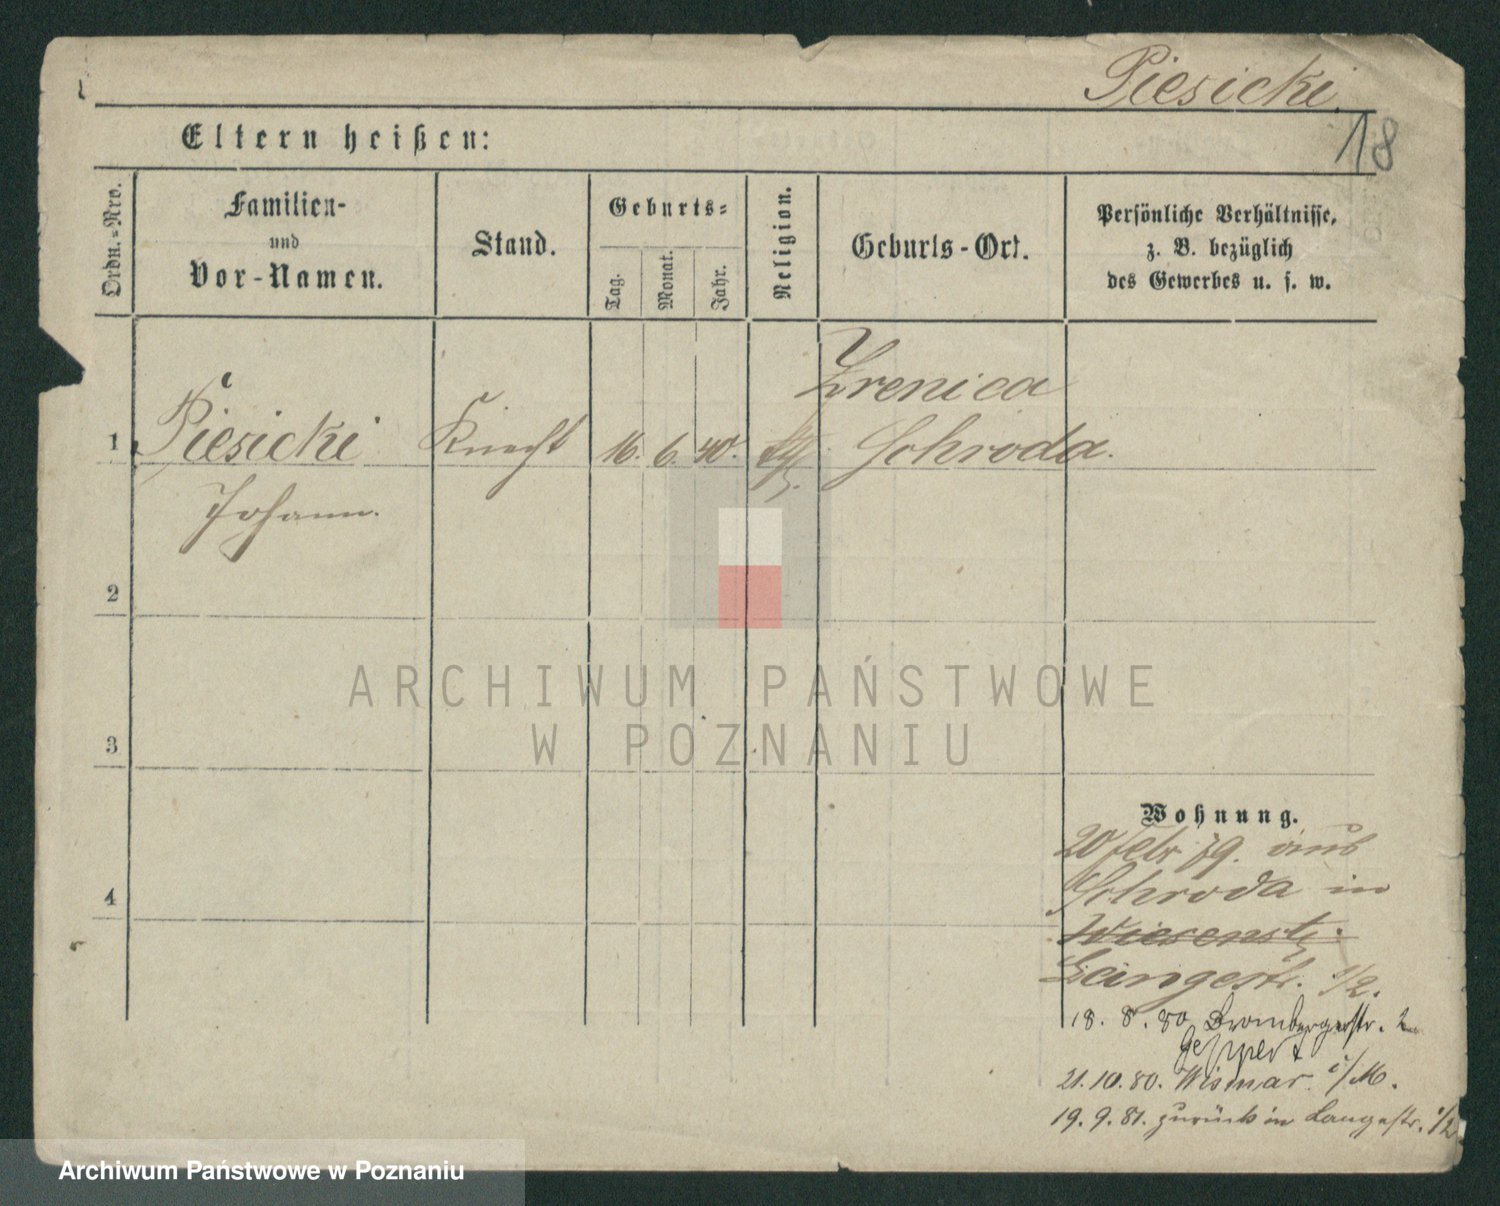 Piesicki.
18
Eltern heißen:
Ordn.-Nro.
Familien-
und
Vor-Namen.
Stand.
Geburts-
Tag.
Monat.
Jahr.
Religion.
Geburts-Ort.
Persönliche Verhältnisse,
z. B. bezüglich
des Gewerbes u. s. w.
Zrenica
1 Piesicki Knecht 16. 6. 40. Schroda.
Johann.
2
3
4
ARCHIWUM PAŃSTWOWE
W POZNANIU
Wohnung.
20 Febr 79. aus
Schroda in
Wiesenstr.
Langestr. 1/2.
18. 8. 80 Brombergerstr. 2
Geppert
21. 10. 80. Wismar i/M.
19. 9. 81. zurück in Langestr. 1/2
Archiwum Państwowe w Poznaniu